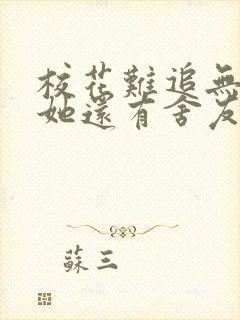 校花難追無
她還有舍友
蘇三